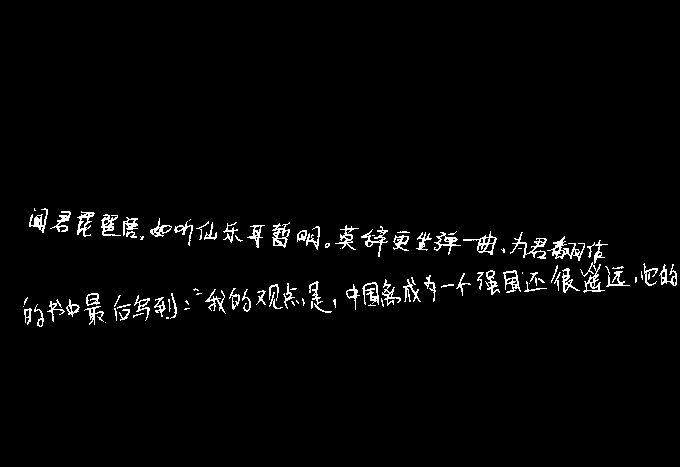 闻君琵琶声,如听仙乐耳暂明。莫辞更坐弹一曲、为君翻作
的书中最后写到:“我的观点是,中国离成为一个强国还很遥远,他的